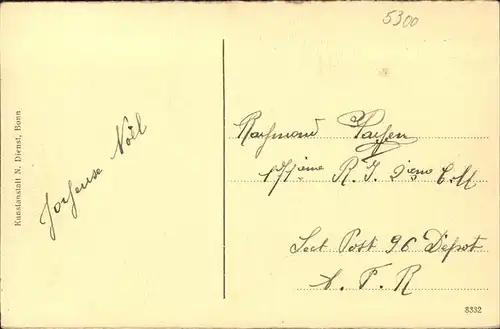 5300
Kunstanstalt N. Dienst, Bonn
Joyeuse Noël
Raymond Payen
171ième R. I. 2ième C. M
Sect Post 96 Depot
A. F. R
8332